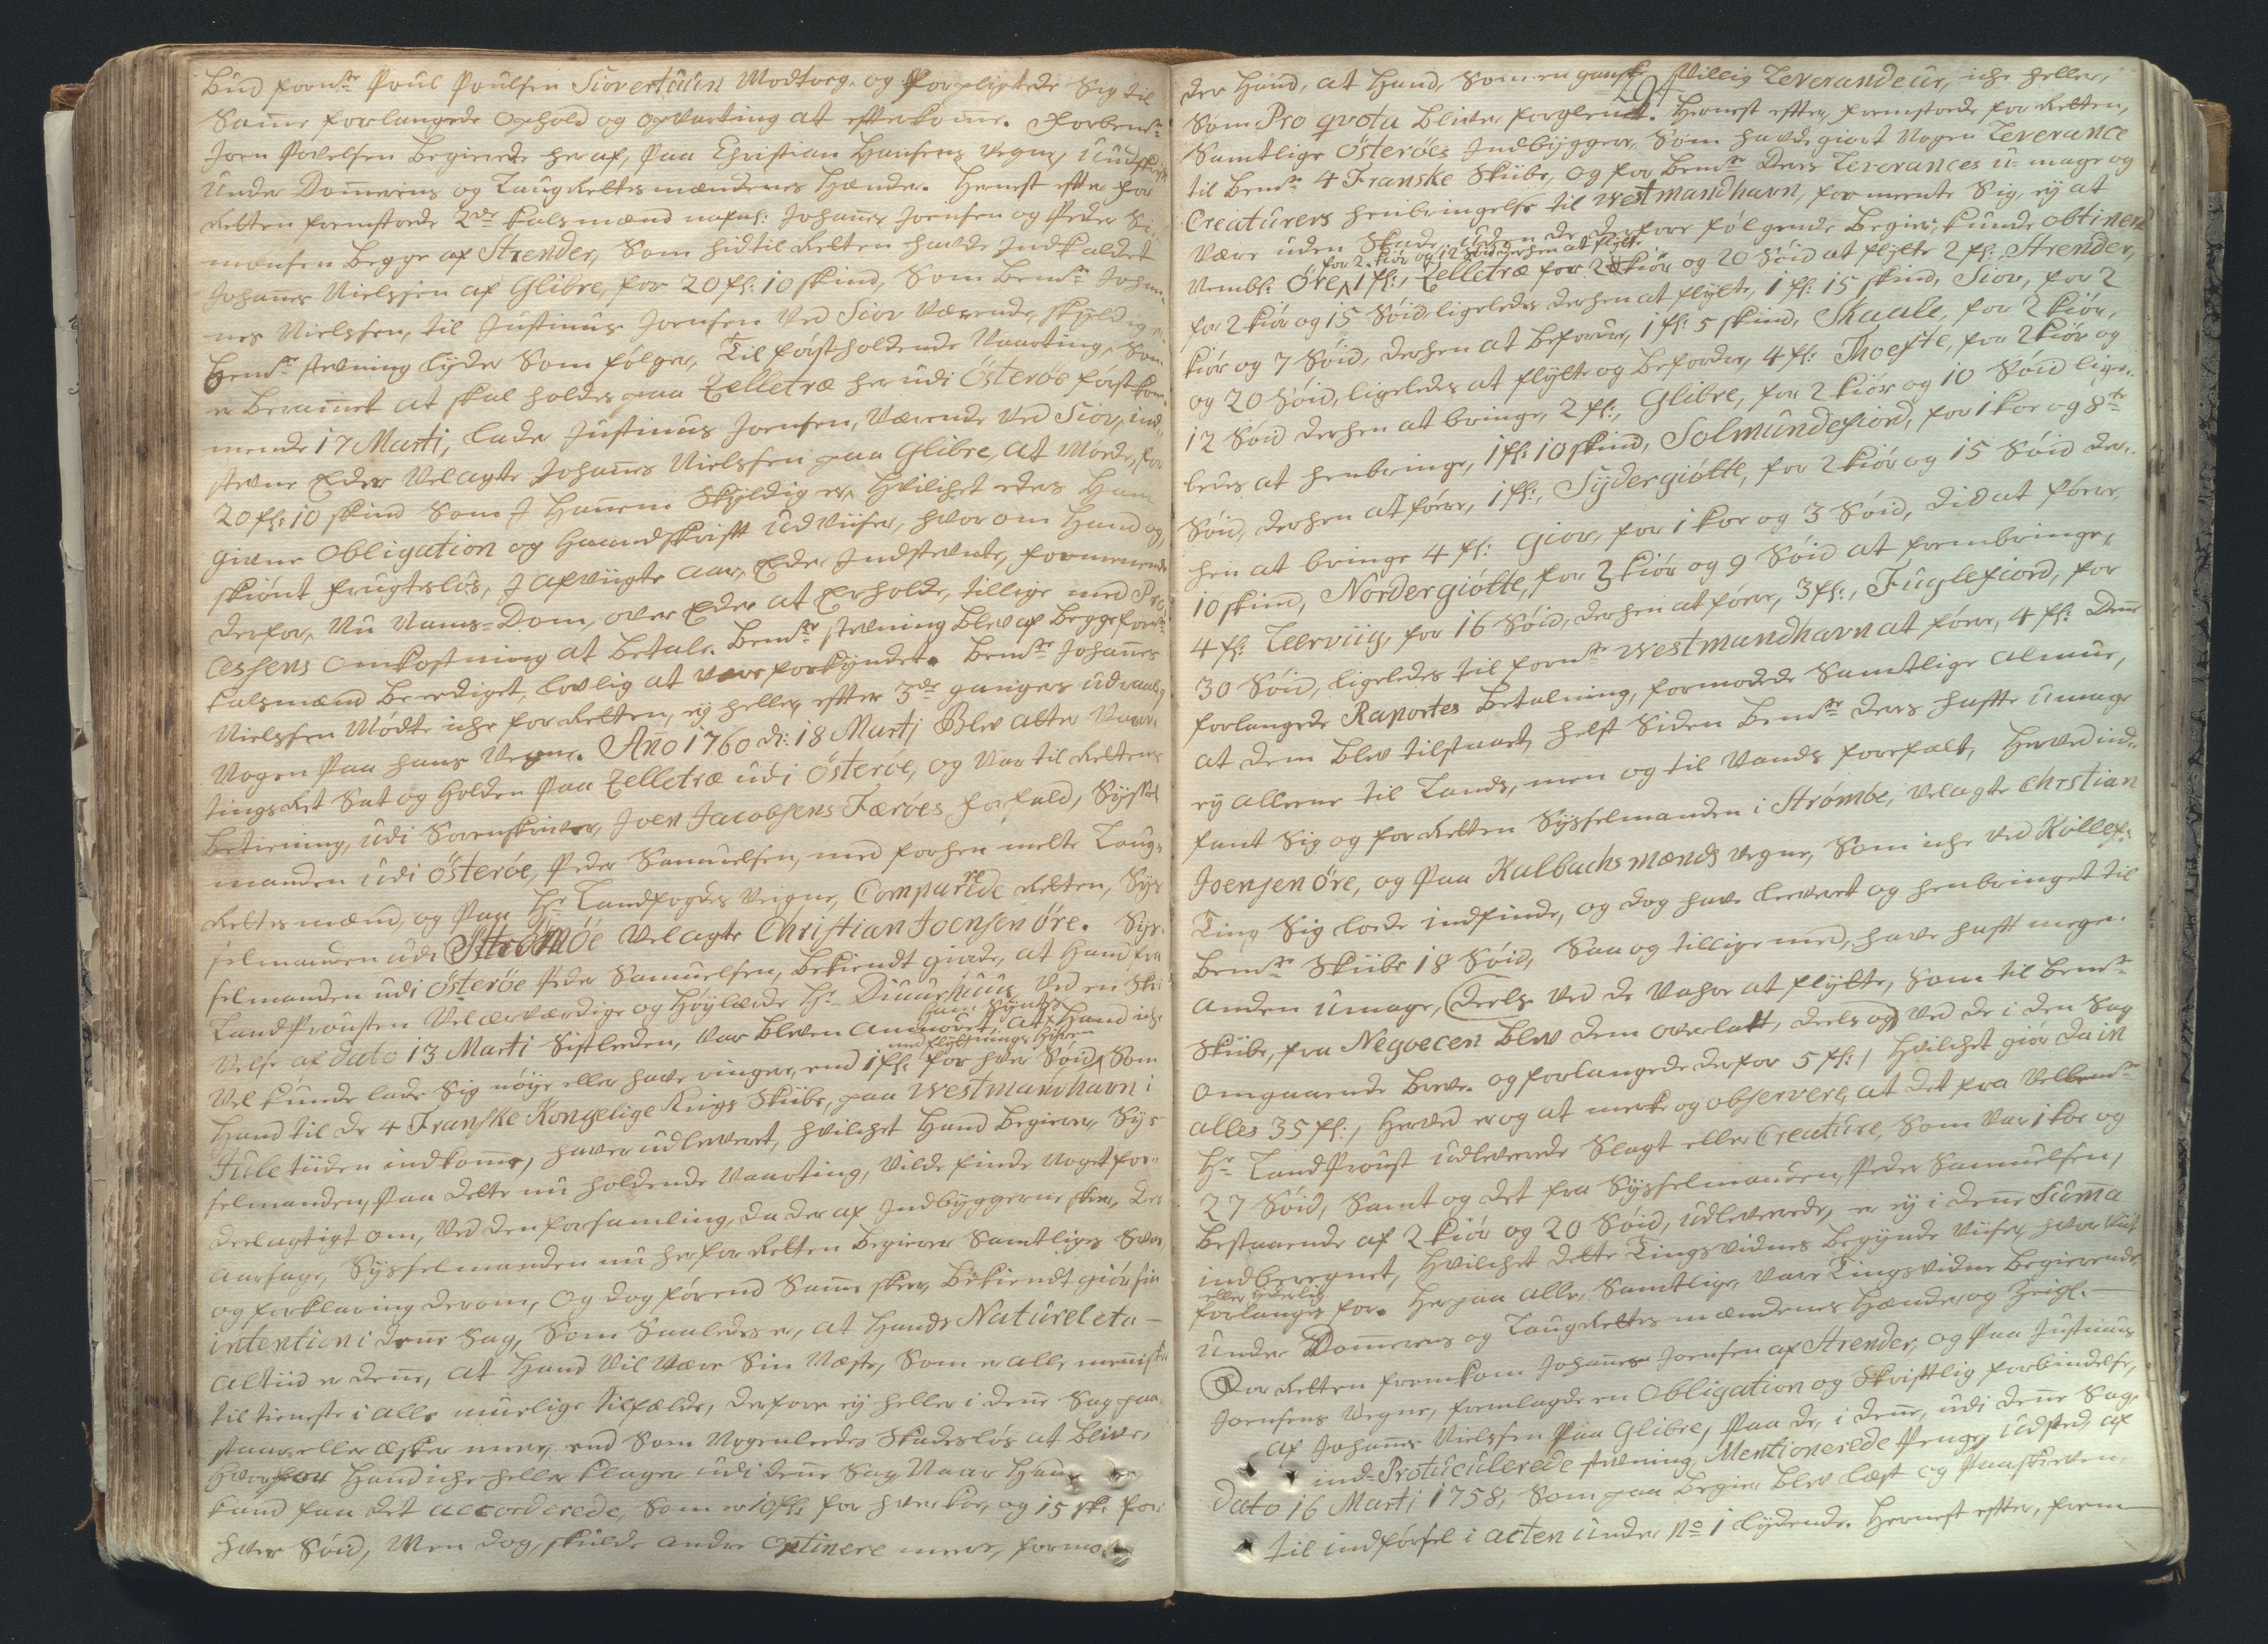 bud forn.te Poul Poulsen Siovertuun Modtog, og Forpligtede Sig til
Samme forlangede Ophold og Opvarting at efterkomme. Forbem.te
Joen Povelsen begierede her af, paa Christian Hansens vegne, uudskrift
under Dommerens og LaugRettesmændenes Hænder. Hernest efter for
Retten fremstoede 2de Kalsmænd nafnl: Johannes Joensen og Peder Si-
monsen begge af Strender, Som hid til Retten hafde Indkaldet
Johannes Nielssen af Glibre, for 20 fl: 10 skind, Som bem.te Johan-
nes Nielssen, til Justinus Joensen ved Siov værende, skyldig er
bem.te stevning lyder Som følger, Til først holdende Vaarting, Som
er berammet at skal holdes paa Zelletræ her udi Österöe førstkom-
mende 17 Marti, lader Justinus Joensen, værende ved Siov, ind-
stevne Eder velagte Johannes Nielssen paa Glibre, at møde, for
20 fl: 10 skind Som I Hannem Skyldig er, hvilchet eders Ham
givne Obligation og haandskrift udviiser, hvor om Hand og,
skiönt frugteslös, I afvigte aar, Eder Indstevnte, formenende
derfor, nu Nams-Dom, over Eder at Erholde, tillige med Pro-
cessens Omkostning at betale. bem.te stevning blev af begge forn.te
Kalsmænd beediget, lovlig at være forkyndet. bem.te Johannes
Nielssen Mødte iche for Retten, ey heller efter 3de ganges udraab,
Nogen paa hans vegne. Año 1760 d: 18 Marti Blev atter Vaar-
tings Ret Sat og holden paa Zelletræ udi Österöe, og var til Rettens
betiening, udi Sorenskriver, Joen Jacobsens Færöes forfald, Syssel
manden udi Österöe, Peder Samuelsen, med forhen melte Laug-
Rettes mænd, og paa Hr Landfogdes veigne, Comparerede Retten, Sys
selmanden udi Strömöe velagte Christian Joensen Öre. Sys-
selmanden udi Österöe Peder Samuelsen, bekiendt giorde, at Hand fra
LandProusten Velærværdige og Høylærde Hr Duurhuus ved en Skri
velse af dato 13 Marti Sistleden, var bleven ammovet, at hans Synes Hand iche
vel kunde lade Sig nöye eller have ringere, end 1 fl: for hver Söid med flyttnings hiörn Som
Hand til de 4 Franske Kongelige Krigs Skiibe, paa Westmandhavn i
Jule tiiden indkomne, haver udleveret, hvilchet Hand begierer, Sys
selmanden, paa dette nu holdende Vaarting, vilde finde Noget for-
deelagtigt om, ved den forsamling, da der af Indbyggerne skeer, der
aarsage, Sysselmanden nu her for Retten begierer Samtliges Svar,
og forklaring derom, Og dog förend Samme skeer, bekiendt giör sin
intention i denne Sag, Som Saaledes er, at hands Naturel etc—
altiid er denne, at Hand vil være Sin Næste, Som er alle menniske
til tieneste i alle muelige tilfælde, derfore ey heller i denne Sag paa
staar eller æsker mere, end Som Nogenledes Skadesløs at blive,
hvorfor Hand iche heller klager udi denne Sag, Naar Hand
kand faa det accorderede, Som er 10 fl: for hver koe, og 15 sk: for
hver Söid, Men dog, skulde andre optinere mere, formo-
der Hand, at Hand, Som en gansk villig Leverandeur, iche heller,
Som Pro qvota bliver forglemt. Hernest efter, fremstoede for Retten,
Samtlige Österöes Indbyggere, Som hafde giort Nogen Leverance
til bem.te 4 Franske Skiibe, og for bem.te deres Leverances u-mage og
Creaturers henbringelse til Westmandhavn, formeente Sig, ey at
være uden Skade, uden de derfore følgende begier, kunde Obtinere
Nembl: Öre for 2 kiör og 12 Söid derhen at flytte 1 fl:, Zelletræ for 2 kiör og 20 Söid at flytte 2 fl:, Strender,
for 2 kiör og 15 Söid, ligeledes derhen at flytte, 1 fl: 15 skind, Siov, for 2
kiör og 7 Söid, derhen at befordre, 1 fl: 5 skind, Skaale, for 2 kiör,
og 20 Söid, ligeledes at flytte og befordre, 4 fl: Thoefte, for 2 kiör og
12 Söid derhen at bringe, 2 fl:, Glibre, for 2 kiör og 10 Söid lige-
ledes at henbringe, 1 fl: 10 skind, Solmundefiord, for 1 koe og 8te
Söid, derhen at före, 1 fl:, Sydergiötte, for 2 kiör og 15 Söid der-
hen at bringe 4 fl: Giov, for 1 koe og 3 Söid, did at före,
10 skind, Nordergiötte, for 3 kiör og 9 Söid at frembringe,
4 fl: Leerviig, for 16 Söid, derhen at före, 3 fl:, Fuglefiord, for
30 Söid, ligeledes til forn.te Westmandhavn at före, 4 fl: denne
forlangede Raportes betalning, formodede Samtlige almue,
at dem blev tilstaaet, helst Siden bem.te deres hafte umage
ey alleene til Lands, men og til Vands forefalt, herved ind-
fant Sig og for Retten Sysselmanden i Strömöe, velagte Chrstian
Joensen Öre, og paa Kalbachs mænds vegne, Som iche ved Kollef:
Ting Sig loede indfinde, og dog have leveret og henbringet til
bem.te Skiibe 18 Söid, Saa og tillige med, have haft megen
anden umage, deels ved de Vahre at flytte, Som til bem.te
Skiibe, fra Negoecen blev dem overladt, deels og ved de i den Sag
omgaaende breve. og forlangede derfor 5 fl:, hvilchet giör da in
alles 35 fl:, herved er og at merke og observere, at det fra Velbem.te
Hr LandProust udleverede Slagt eller Creature, Som var 1 koe og
27 Söid, Samt og det fra Sysselmanden, Peder Samuelsen,
bestaaende af 2 kiör og 20 Söid, udleverede, er ey i denne Summa
indberegnet, hvilchet dette Tingsvidnes begynde viiser, hvor viit
eller yderlig
forlanges for. Herpaa alle, Samtlige, vare Tingsvidne begierende
under Dommerens og LaugRettes mændenes Hænder og Zeigl. —
For Retten fremkom Johannes Joensen af Strender, og paa Justinus
Joensens vegne, fremlagde en Obligation og Skriftlig forbindelse,
af Johannes Nielssen paa Glibre, paa de, i denne, udi denne Sag,
ind-Protuculerede stevning, Mentionerede Penge, udsted, af
Dato 16 Marti 1758, Som paa begier blev læst og paaskreven,
til indförsel i acten under No 1 lydende. Hernest efter, frem-